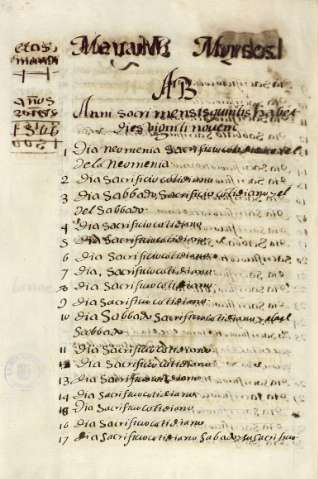 etas
mundi
años
AB
Anni sacri mensis quintus habet
dies viginti novem
1 Dia neomenia Sacrificio cotidiano el
de la Neomenia
2 dia Sacrificio cotidiano
3 Dia Sabbado, Sacrificio cotidiano, el
del Sabbado
4 dia Sacrificio cotidiano
5 dia Sacrificio cotidiano
6 dia Sacrificio cotidiano
7 dia, Sacrificio cotidiano
8 dia Sacrificio cotidiano
9 dia Sacrificio cotidiano
10 dia Sabbado Sacrificio cotidiano el del
Sabbado
11 dia Sacrificio cotidiano
12 dia Sacrificio cotidiano
13 dia Sacrificio cotidiano
14 dia Sacrificio cotidiano
Dia Sacrificio cotidiano
16 dia Sacrificio cotidiano
17 dia Sacrificio cotidiano Sabado su sacrificio